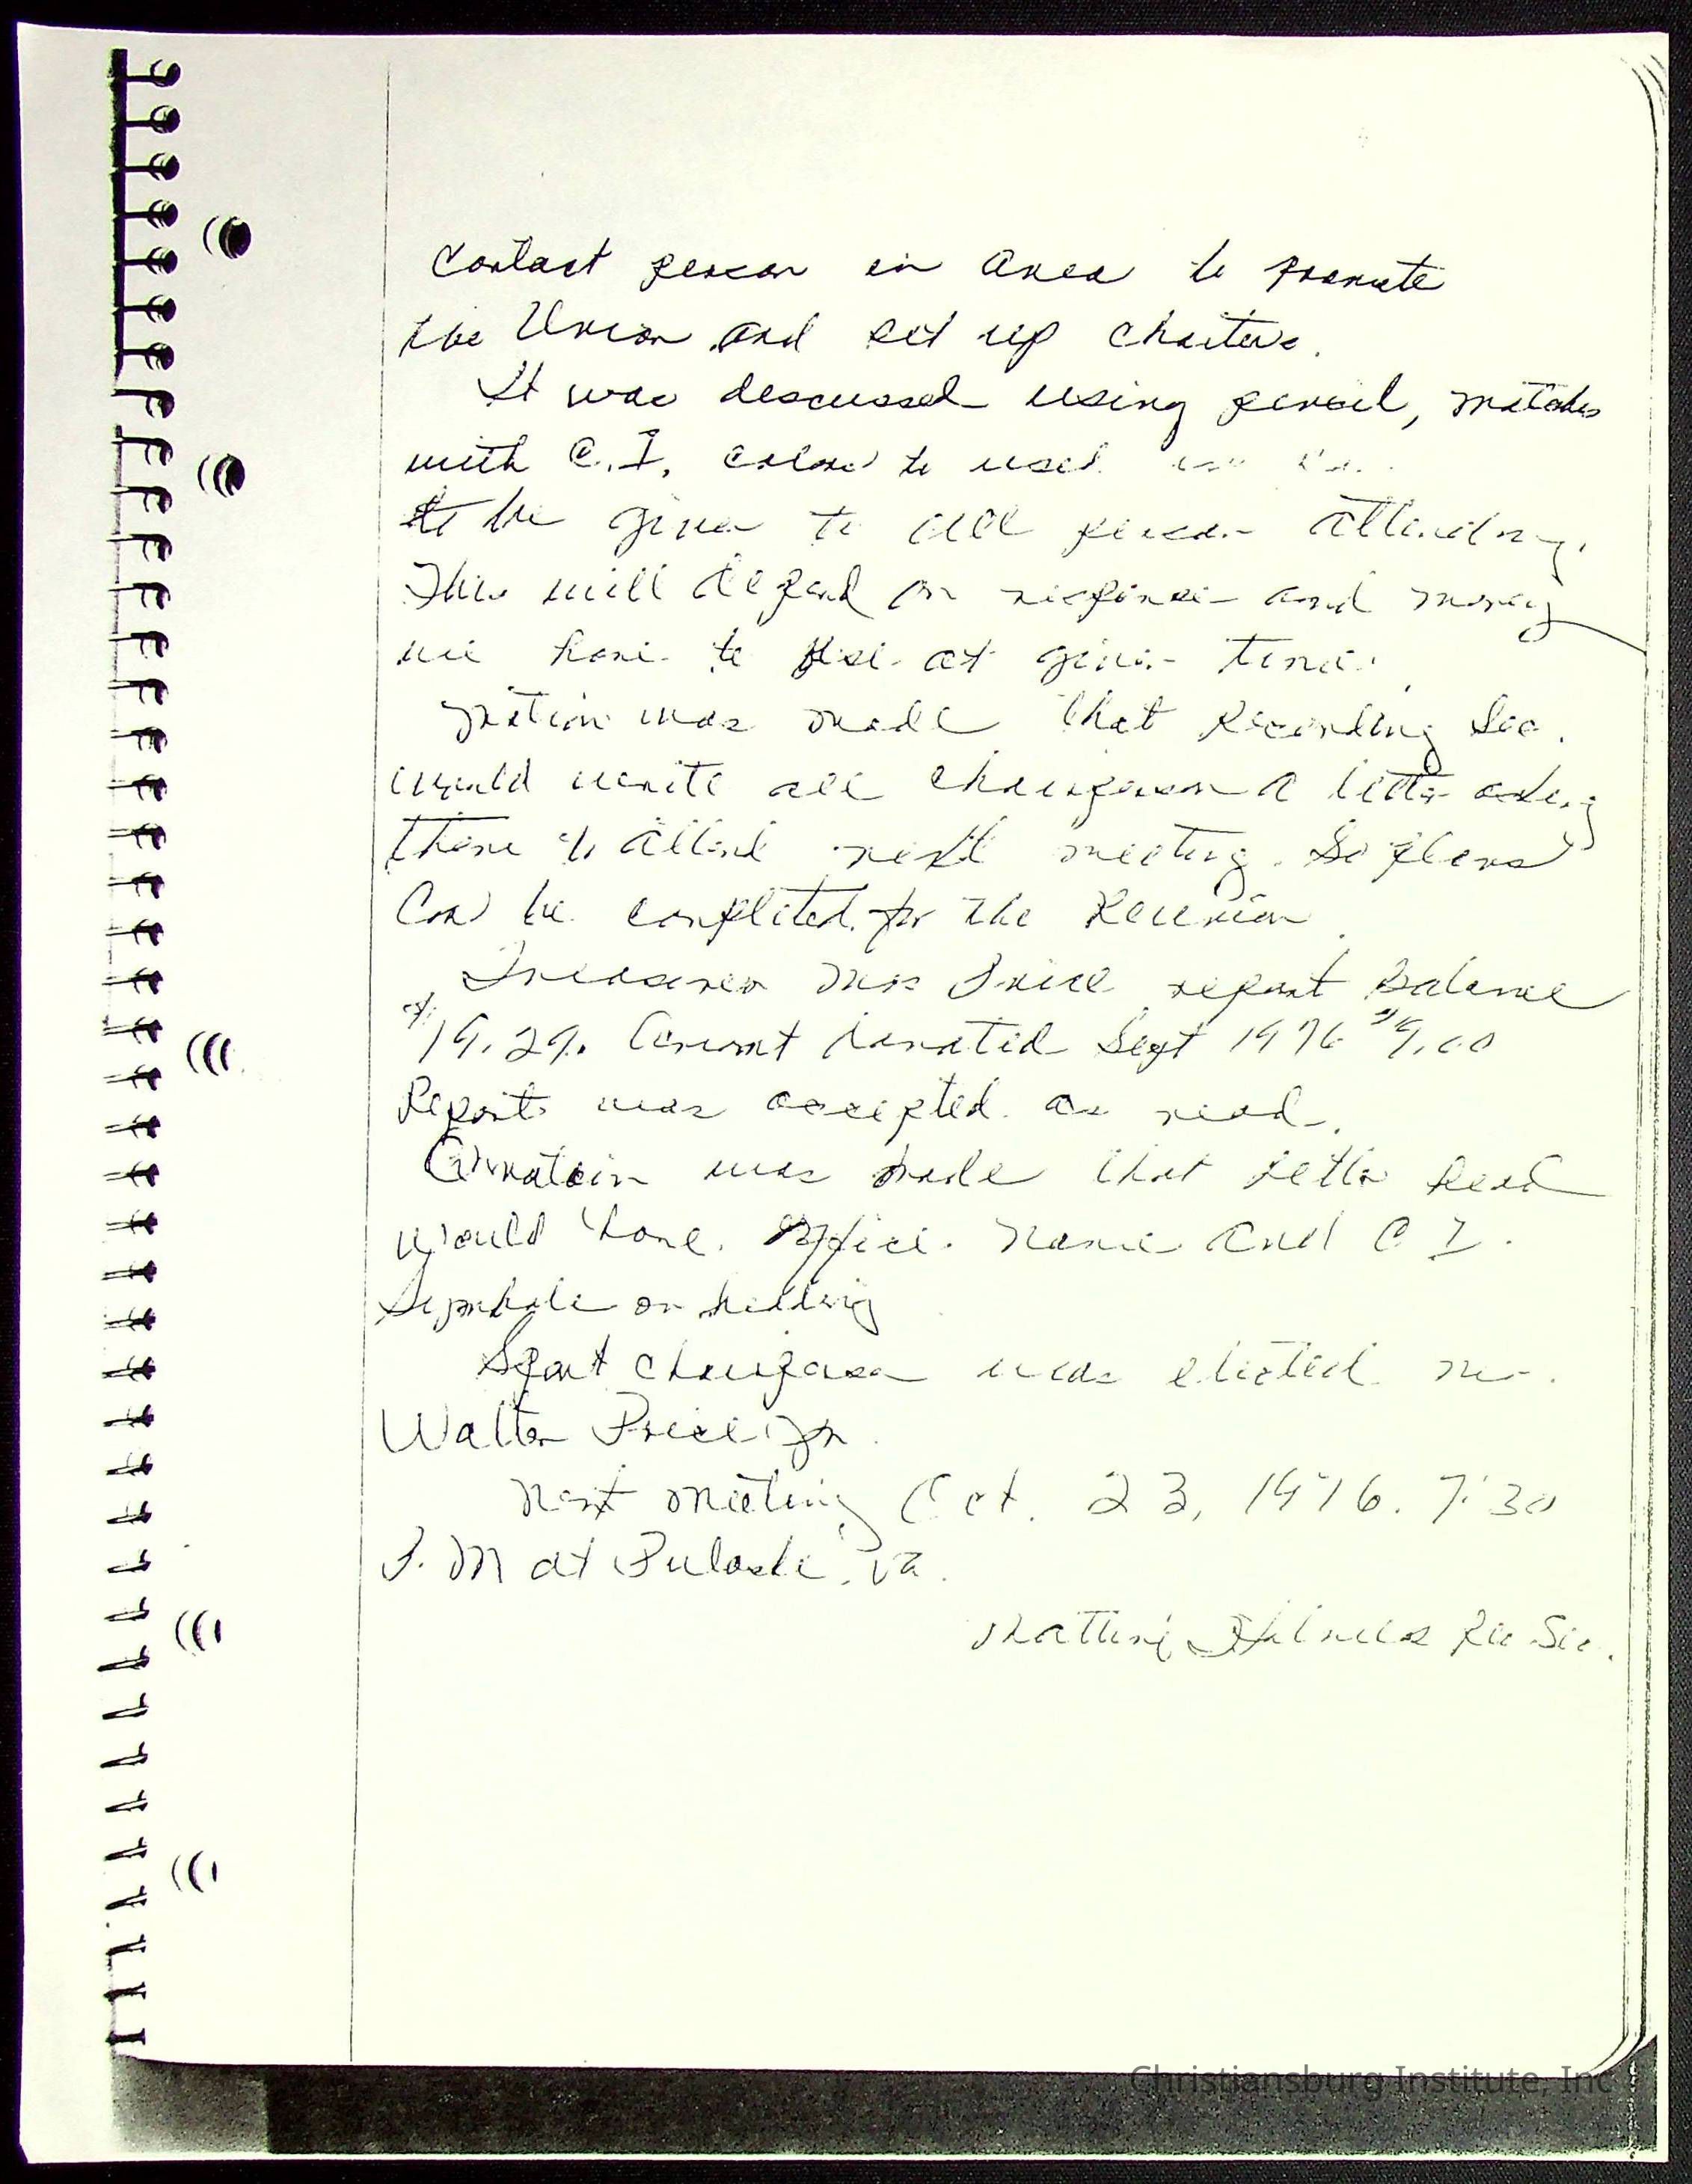 contact person in area to promote
the Union and set up charters.
It was discussed using pencil, matches
with C.I. colors to used
to be given to all person attending.
This will depend on response and money
we have to use at given time.
Motion was made that Recording Sec.
would write all chairperson a letter asking
them to attend next meeting. So plans
can be completed for the Reunion.
Treasurer Mrs Price report Balance
$19.29. Amount donated Sept 1976 $9.00
Report was accepted as read.
was made that letter head
would have Office Name and C I
Symbole on heading
Sport chairperson was elected Mr.
Walter Price Jr.
Next meeting Oct. 23, 1976. 7:30
P.M at Pulaski, Va.
Rec Sec.
Christiansburg Institute, Inc